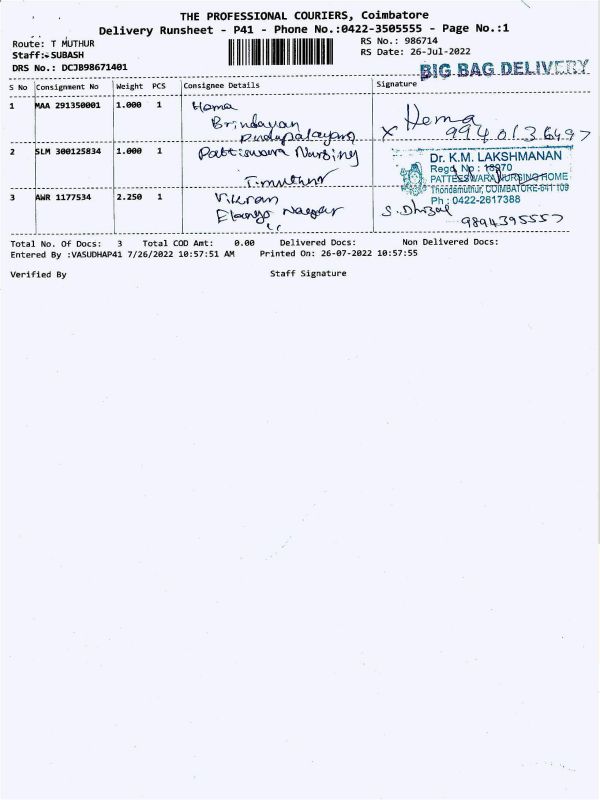 THE PROFESSIONAL COURIERS, Coimbatore
Delivery Runsheet - P41 - Phone No.:0422-3505555 - Page No.:1
Route: T MUTHUR
RS No.: 986714
Staff: SUBASH
RS Date: 26-Jul-2022
DRS No.: DCJB98671401
BIG BAG DELIVERY
S No Consignment No Weight PCS Consignee Details Signature
1 MAA 291350001 1.000 1 Hema Hema
Brindavan
X 9940136497
2 SLM 300125834 1.000 1 Pattiswara Nursing
Dr. K.M. LAKSHMANAN
Regd. No : 18970
PATTEESWARA NURSING HOME
T.muthur
Thondamuthur, COIMBATORE-641 109
Ph : 0422-2617388
3 AWR 1177534 2.250 1 Vikram
Elango Nagar
9894395557
Total No. Of Docs: 3 Total COD Amt: 0.00 Delivered Docs: Non Delivered Docs:
Entered By :VASUDHAP41 7/26/2022 10:57:51 AM Printed On: 26-07-2022 10:57:55
Verified By Staff Signature